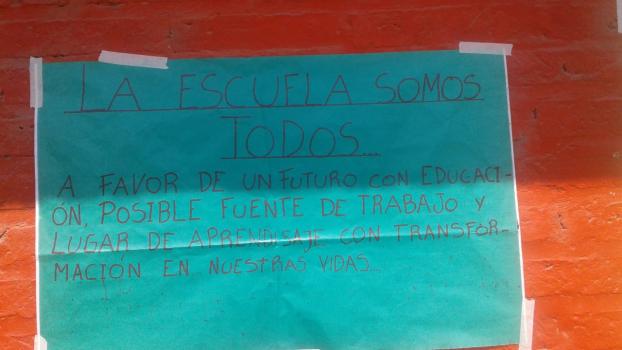 LA ESCUELA SOMOS
TODOS...
A FAVOR DE UN FUTURO CON EDUCACI-
ÓN, POSIBLE FUENTE DE TRABAJO Y
LUGAR DE APRENDISAJE CON TRANSFOR-
MACIÓN EN NUESTRAS VIDAS...